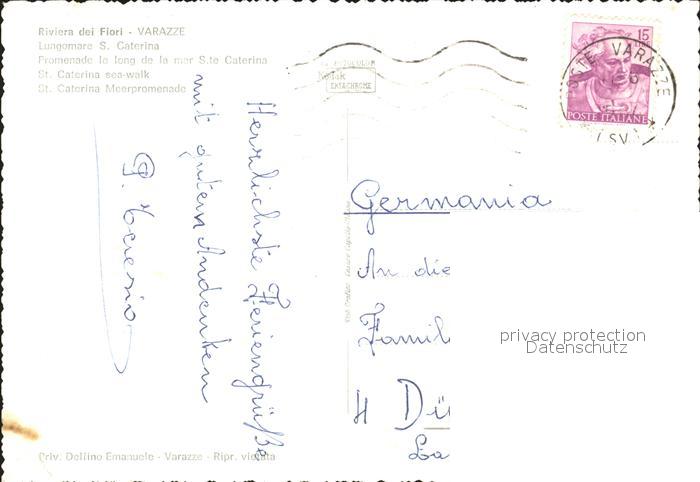 Riviera dei Fiori - VARAZZE
Lungomare S. Caterina
Promenade le long de la mer S.te Caterina
St. Caterina sea-walk
St. Caterina Meerpromenade
Kodak
EKTACHROME
15
POSTE ITALIANE
VARAZZE
(SV)
Herzlichste Feriengrüße
mit gutem Andenken
P. Teresio
Germania
An die
Famil
4 Dü
La
privacy protection
Datenschutz
Priv. Delfino Emanuele - Varazze - Ripr. vietata